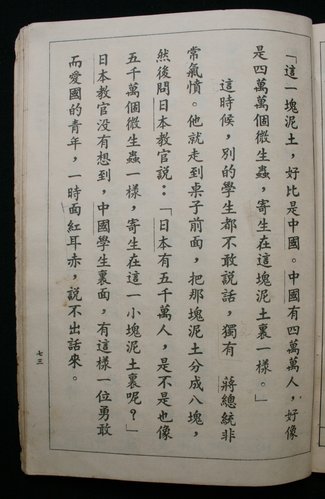 「這一塊泥土，好比是中國。中國有四萬萬人，好像
是四萬萬個微生蟲，寄生在這塊泥土裏一樣。」
這時候，別的學生都不敢說話，獨有　蔣總統非
常氣憤。他就走到桌子前面，把那塊泥土分成八塊，
然後問日本教官說：「日本有五千萬人，是不是也像
五千萬個微生蟲一樣，寄生在這一小塊泥土裏呢？」
日本教官沒有想到，中國學生裏面，有這樣一位勇敢
而愛國的青年，一時面紅耳赤，說不出話來。
七三